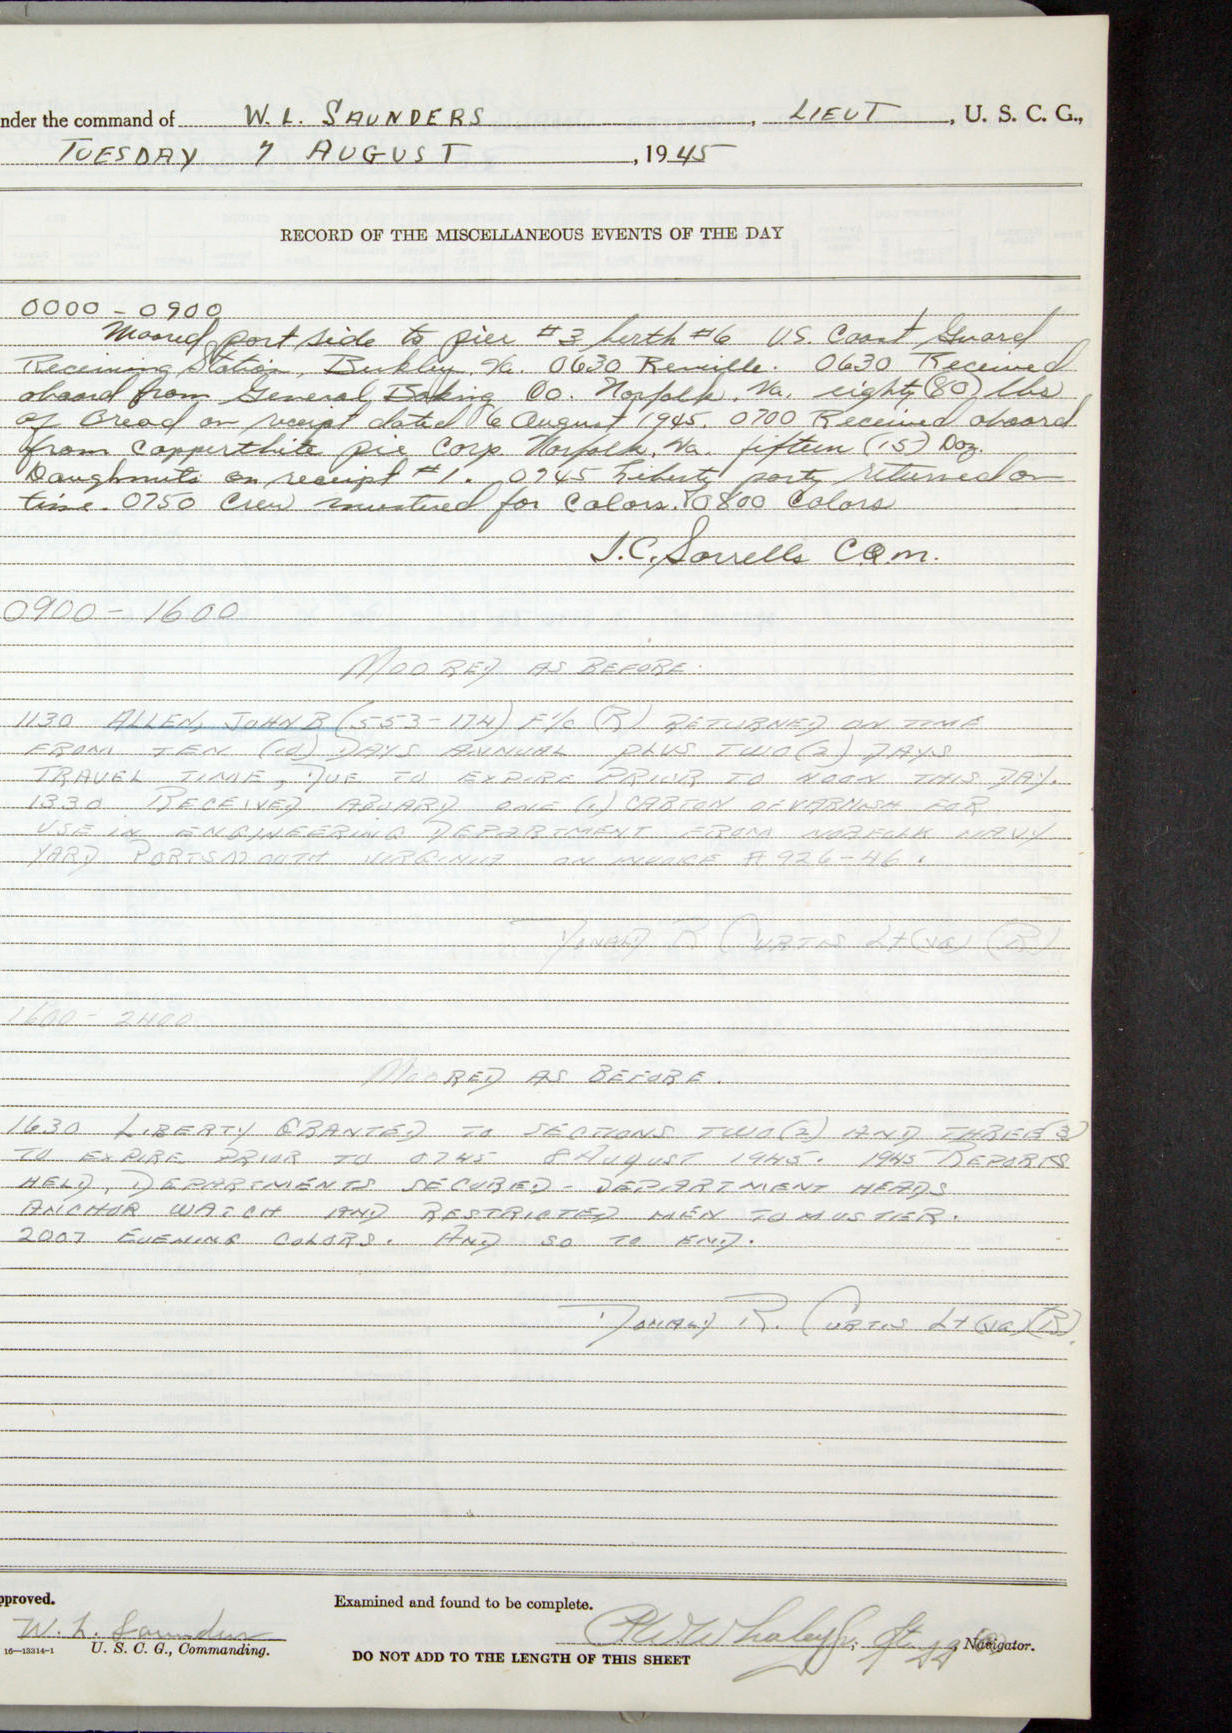 nder the command of W. L. SAUNDERS, LIEUT, U. S. C. G.,
TUESDAY 7 AUGUST, 1945
RECORD OF THE MISCELLANEOUS EVENTS OF THE DAY
0000 - 0900
Moored port side to pier #3 berth #6 U.S. Coast Guard
Receiving Station, Berkley, Va. 0630 Reveille. 0630 Received
aboard from General Baking Co. Norfolk, Va. eighty (80) lbs
of Bread on receipt dated 6 August 1945. 0700 Received aboard
from Copperthite pie Corp. Norfolk, Va. fifteen (15) Doz.
Doughnuts on receipt #1. 0745 Liberty party returned on
time. 0750 Crew mustered for Colors. 0800 Colors
J.C. Sorrells C.Q.M.
0900 - 1600
MOORED AS BEFORE.
1130 ALLEN, JOHN B (553-174) F1/c (R) RETURNED ON TIME
FROM TEN (10) DAYS ANNUAL PLUS TWO (2) DAYS
TRAVEL TIME, DUE TO EXPIRE PRIOR TO NOON THIS DAY.
1330 RECEIVED ABOARD ONE (1) CARTON OF VARNISH FOR
USE IN ENGINEERING DEPARTMENT FROM NORFOLK NAVY
YARD PORTSMOUTH VIRGINIA ON INVOICE #926-46.
DONALD R CURTIS Lt (JG) (R)
1600 - 2400
MOORED AS BEFORE.
1630 LIBERTY GRANTED TO SECTIONS TWO (2) AND THREE (3)
TO EXPIRE PRIOR TO 0745 8 AUGUST 1945. 1945 REPORTS
HELD, DEPARTMENTS SECURED - DEPARTMENT HEADS
ANCHOR WATCH AND RESTRICTED MEN TO MUSTER.
2007 EVENING COLORS. AND SO TO END.
DONALD R. CURTIS Lt (JG) (R)
pproved.
Examined and found to be complete.
W. L. Saunders
16—13314-1 U. S. C. G., Commanding.
, Navigator.
DO NOT ADD TO THE LENGTH OF THIS SHEET